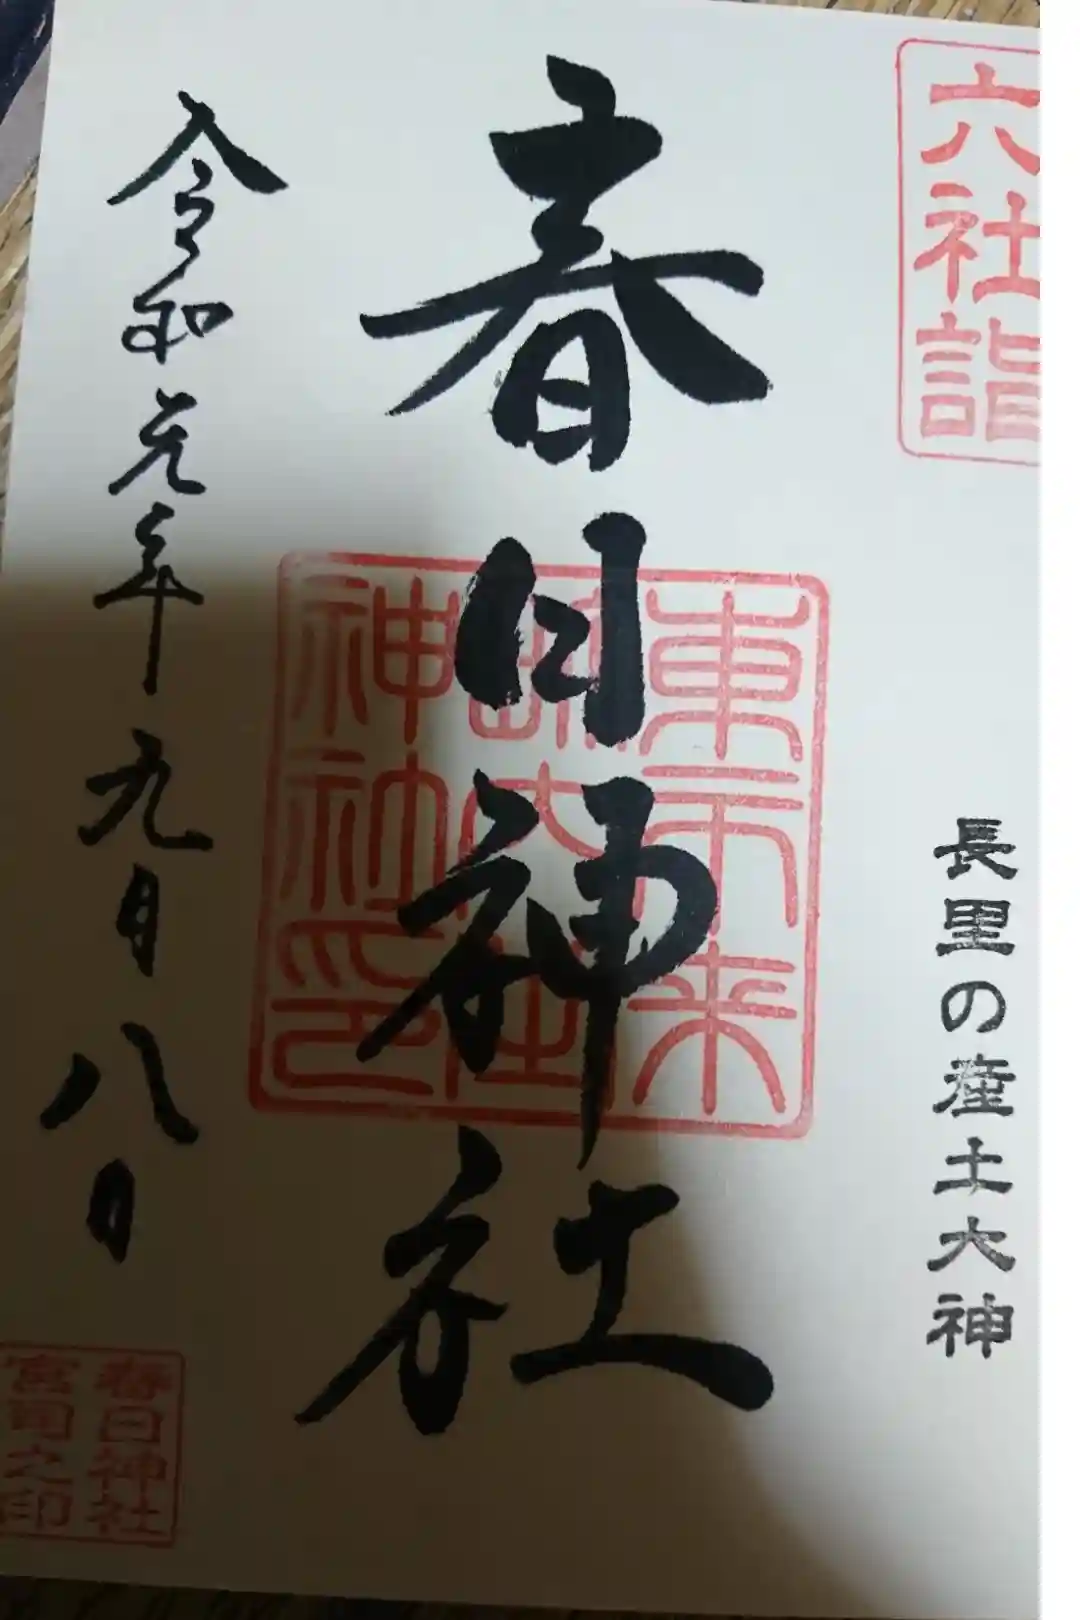 六社詣
長里の産土大神
春日神社
東
神社印
令和元年九月八日
春日神社
宮司之印